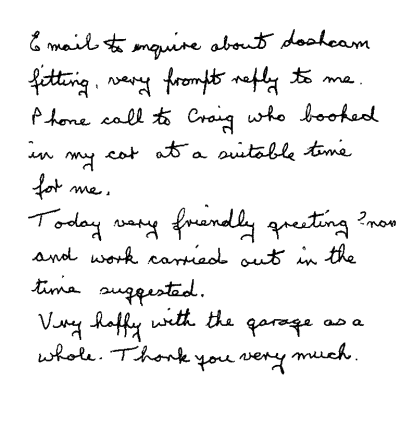 Email to enquire about dashcam
fitting, very prompt reply to me.
Phone call to Craig who booked
in my car at a suitable time
for me.
Today very friendly greeting
and work carried out in the
time suggested.
Very happy with the garage as a
whole. Thank you very much.